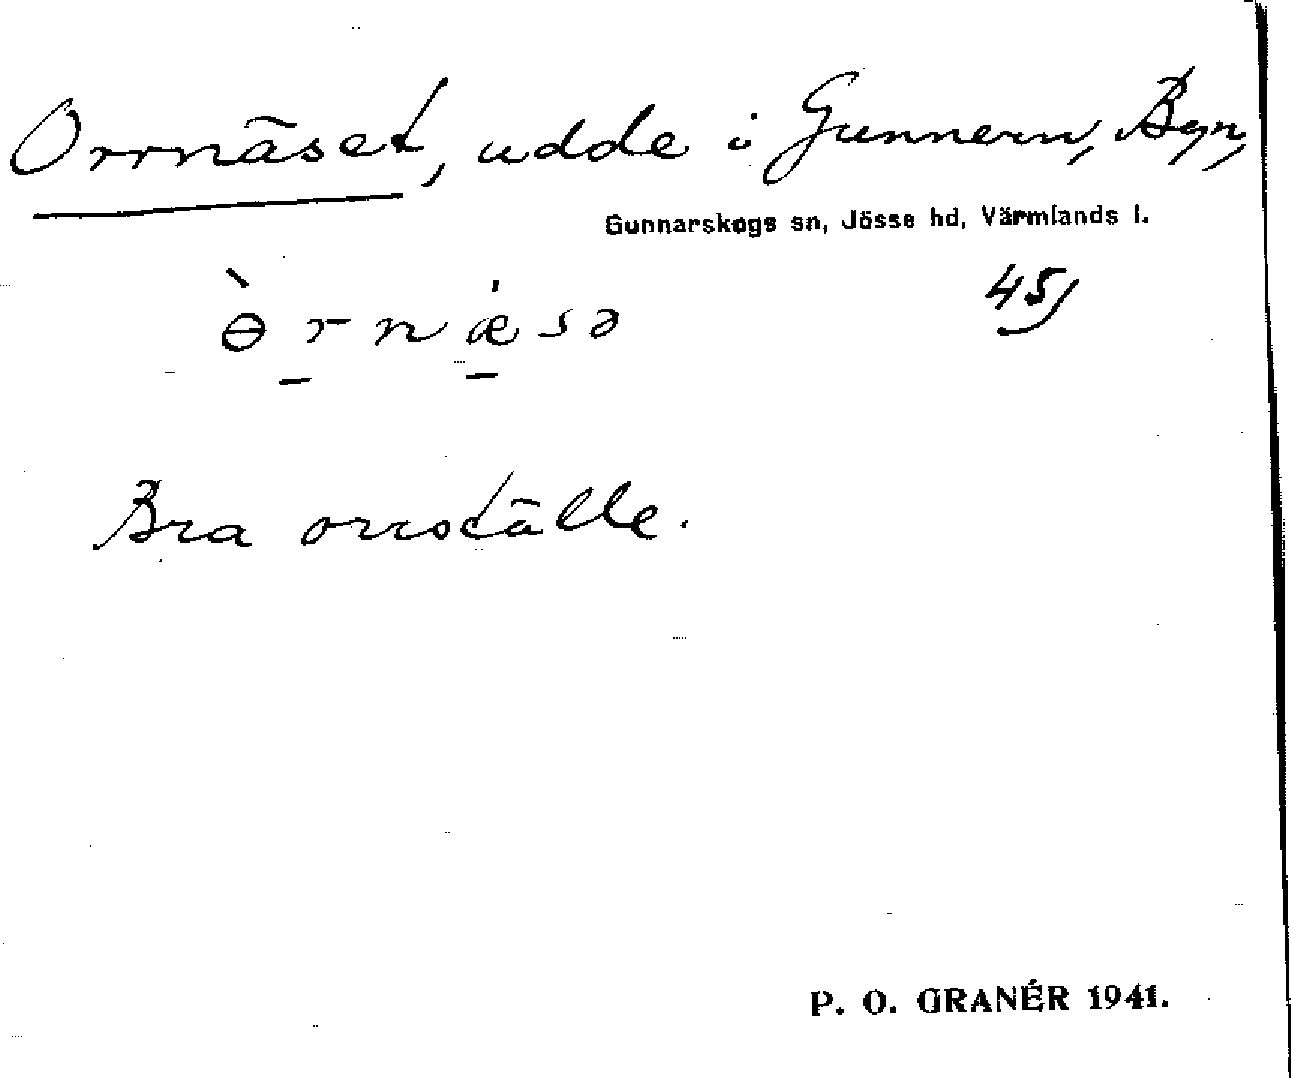 Orrnäset, udde i Gunnern, Byn,
Gunnarskogs sn, Jösse hd, Värmlands l.
ɵ̀r̠næ̠̍sə 45)
Bra orrställe.
P. O. GRANÉR 1941.